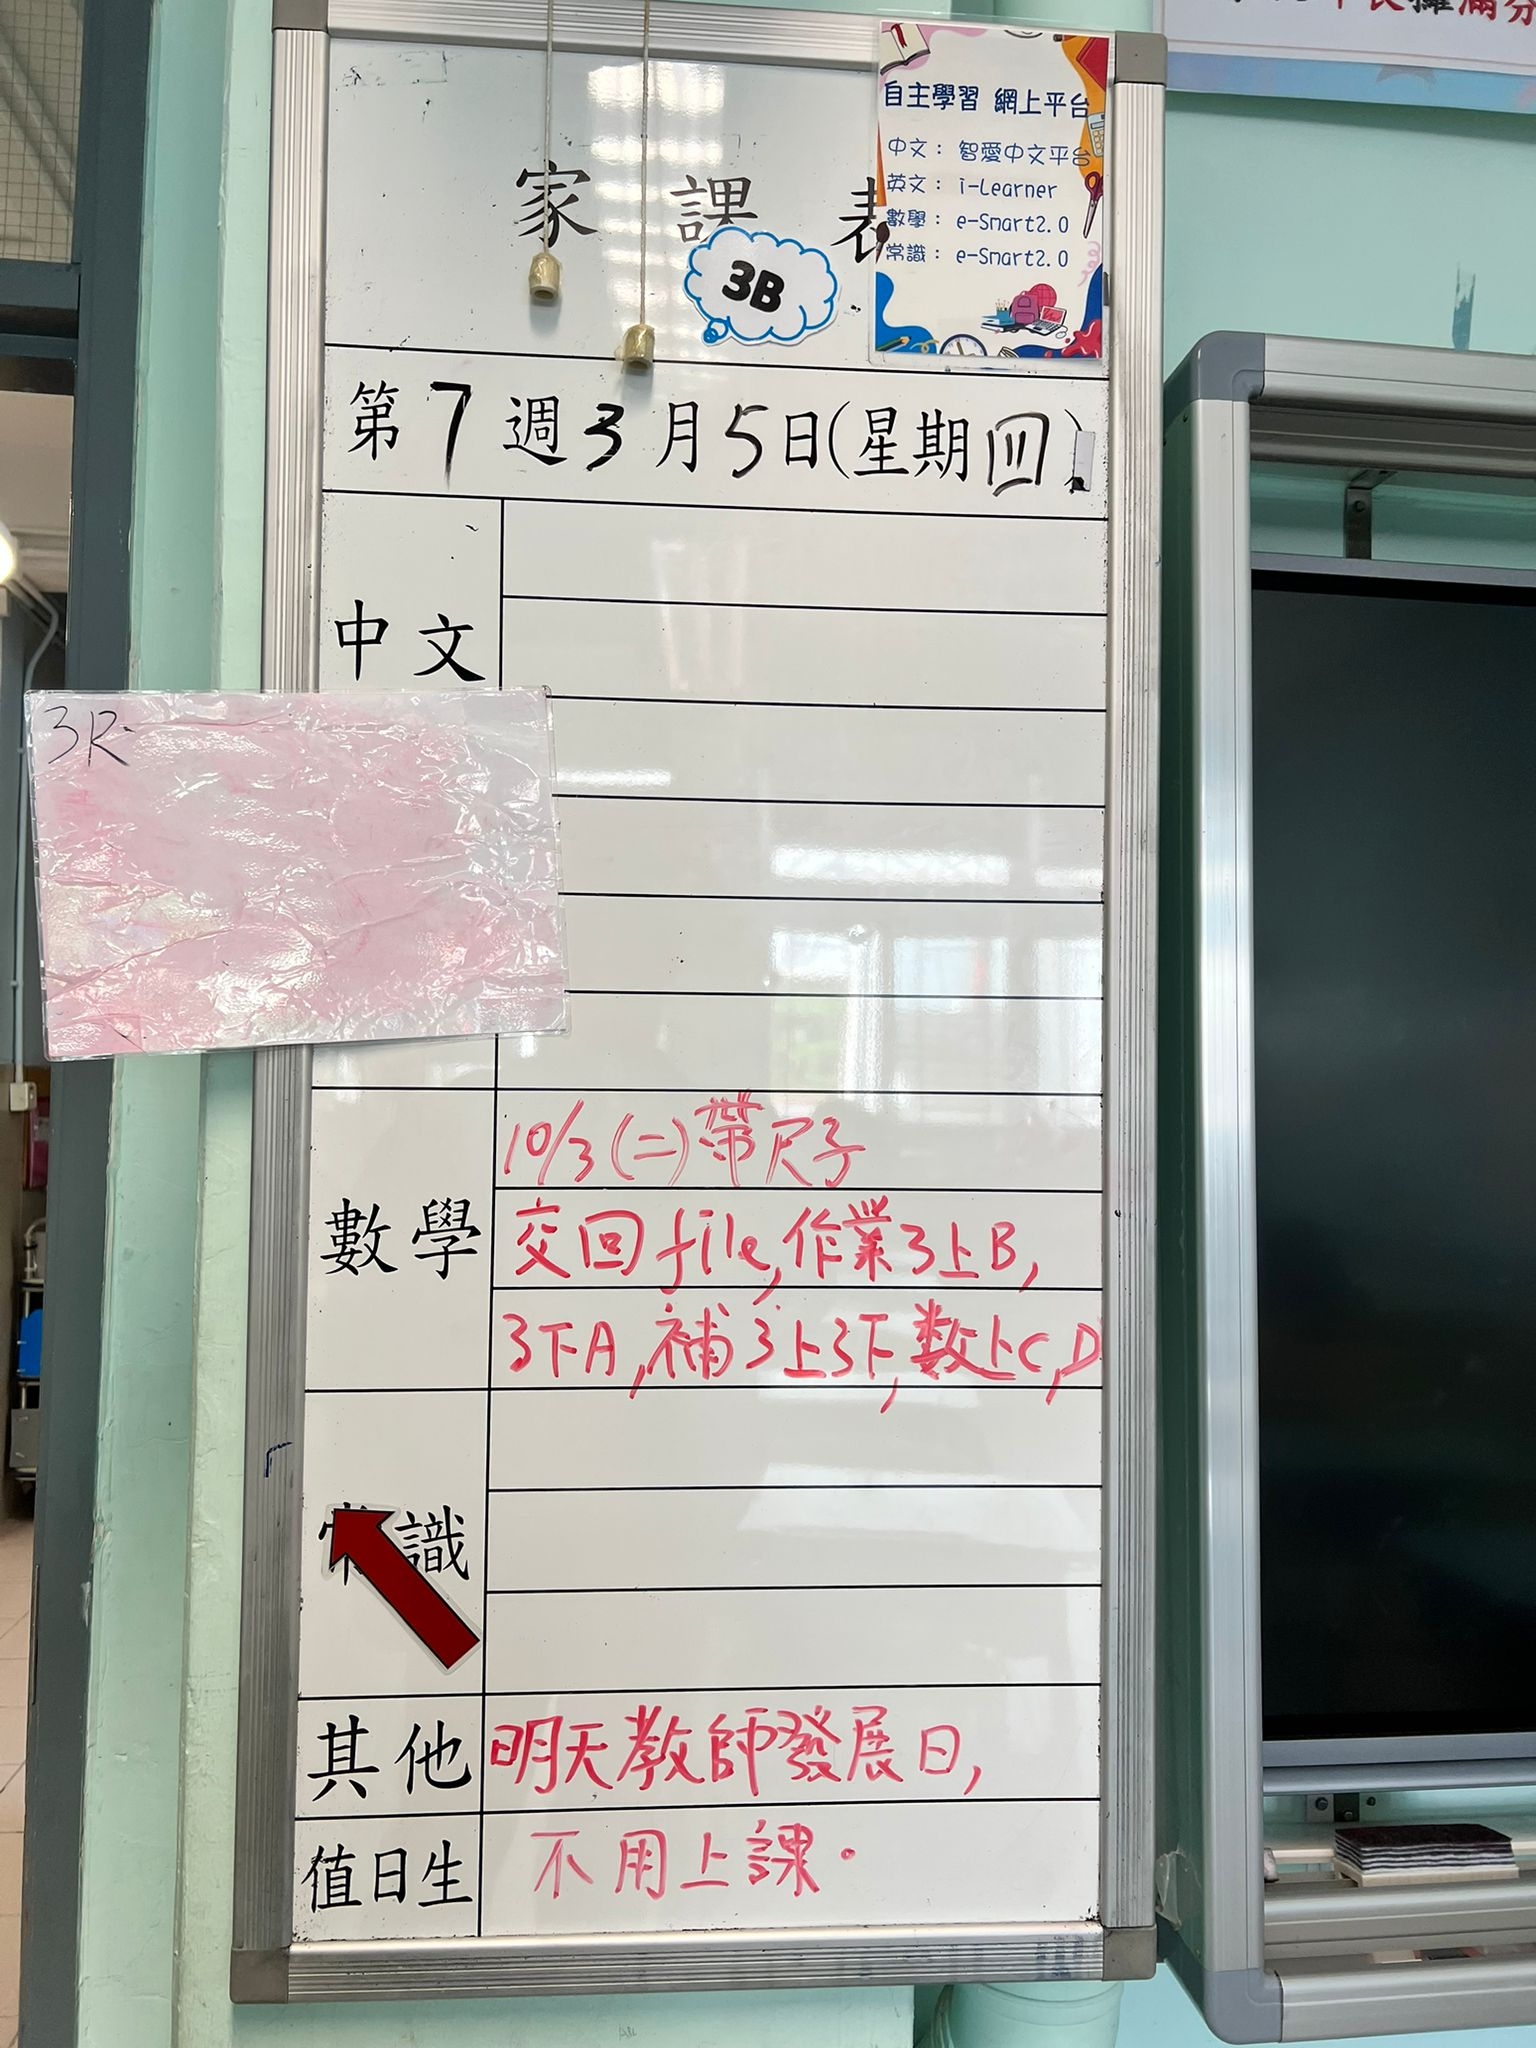 滿分
自主學習 網上平台
中文： 智愛中文平台
英文： i-Learner
數學： e-Smart2.0
常識： e-Smart2.0
家課表
3B
第7週3月5日(星期四)
中文
3R
數學
10/3(二)帶尺子
交回file,作業3上B,
3下A,補3上3下,数上C,D
常識
其他
明天教師發展日,
值日生
不用上課.